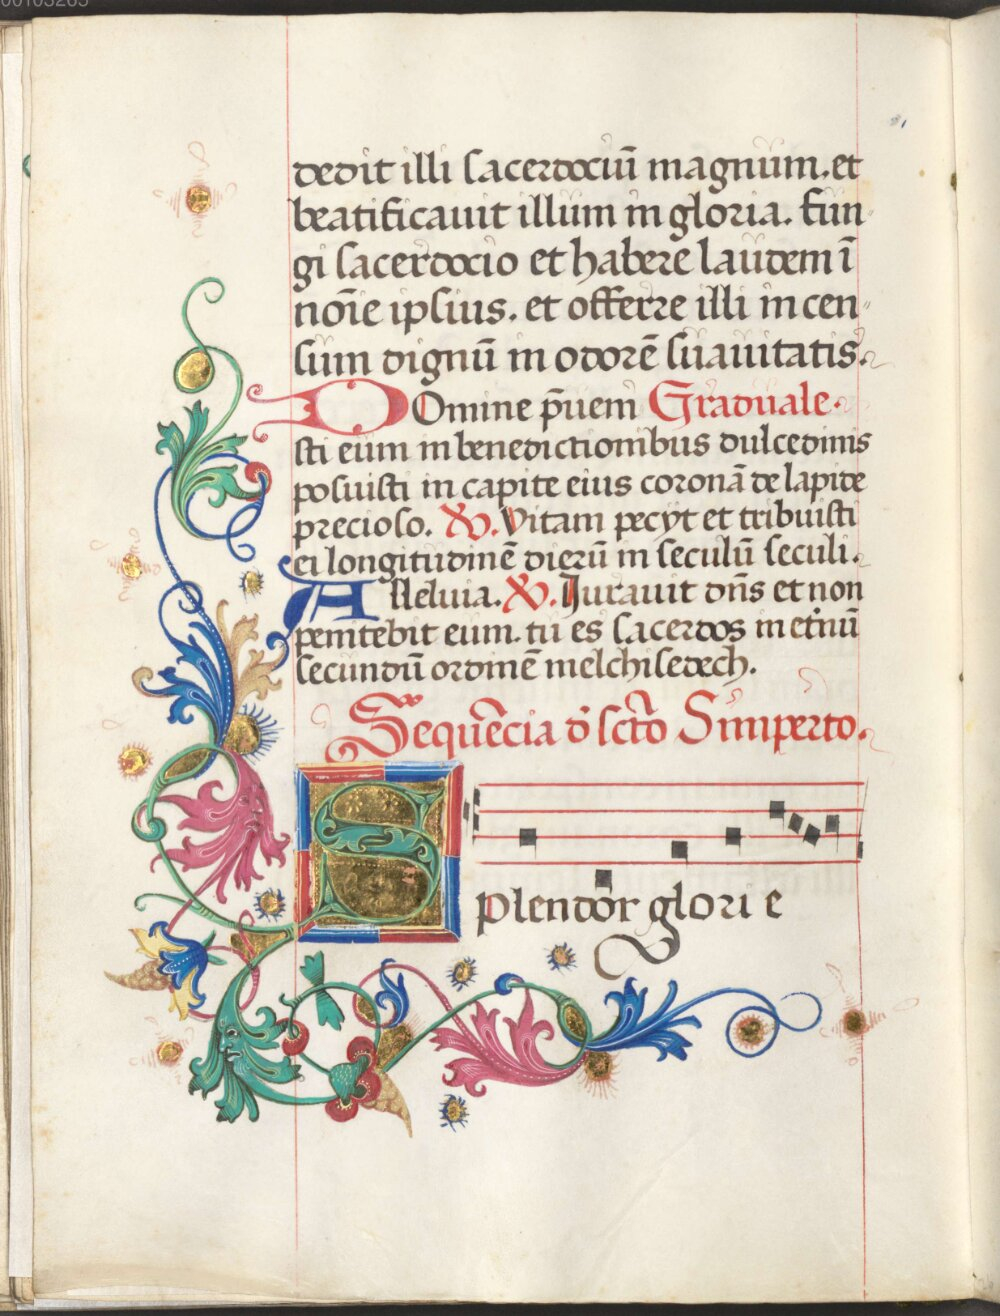 dedit illi sacerdociū magnum. et
beatificauit illum in gloria. fun
gi sacerdocio et habere laudem ī
noīe ipsius. et offerre illi incen
sum dignū in odorē suauitatis.
Domine p̄uem Graduale.
sti eum in benedictionibus dulcedinis
posuisti in capite eius coronā de lapide
precioso. Vitam peciit et tribuisti
ei longitudinē dierū in seculū seculi.
Alleluia. Iurauit dn̄s et non
penitebit eum. tu es sacerdos in etnū
secundū ordinē melchisedech.
Sequēcia d̄ scто Simperto.
Splendor glorie